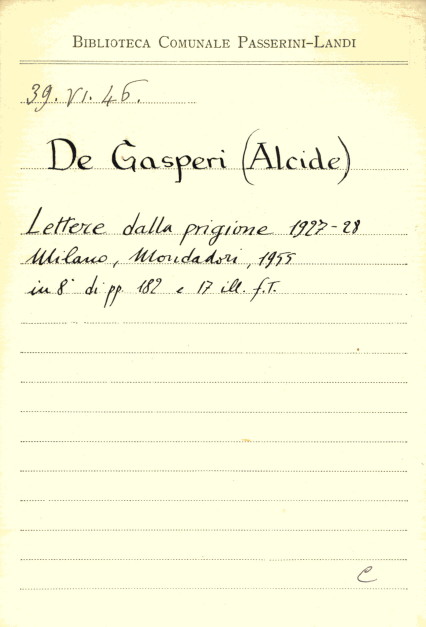 BIBLIOTECA COMUNALE PASSERINI-LANDI
39. VI. 46.
De Gasperi (Alcide)
Lettere dalla prigione 1927-28
Milano, Mondadori, 1955
in 8° di pp. 182 e 17 ill. f.T.
C